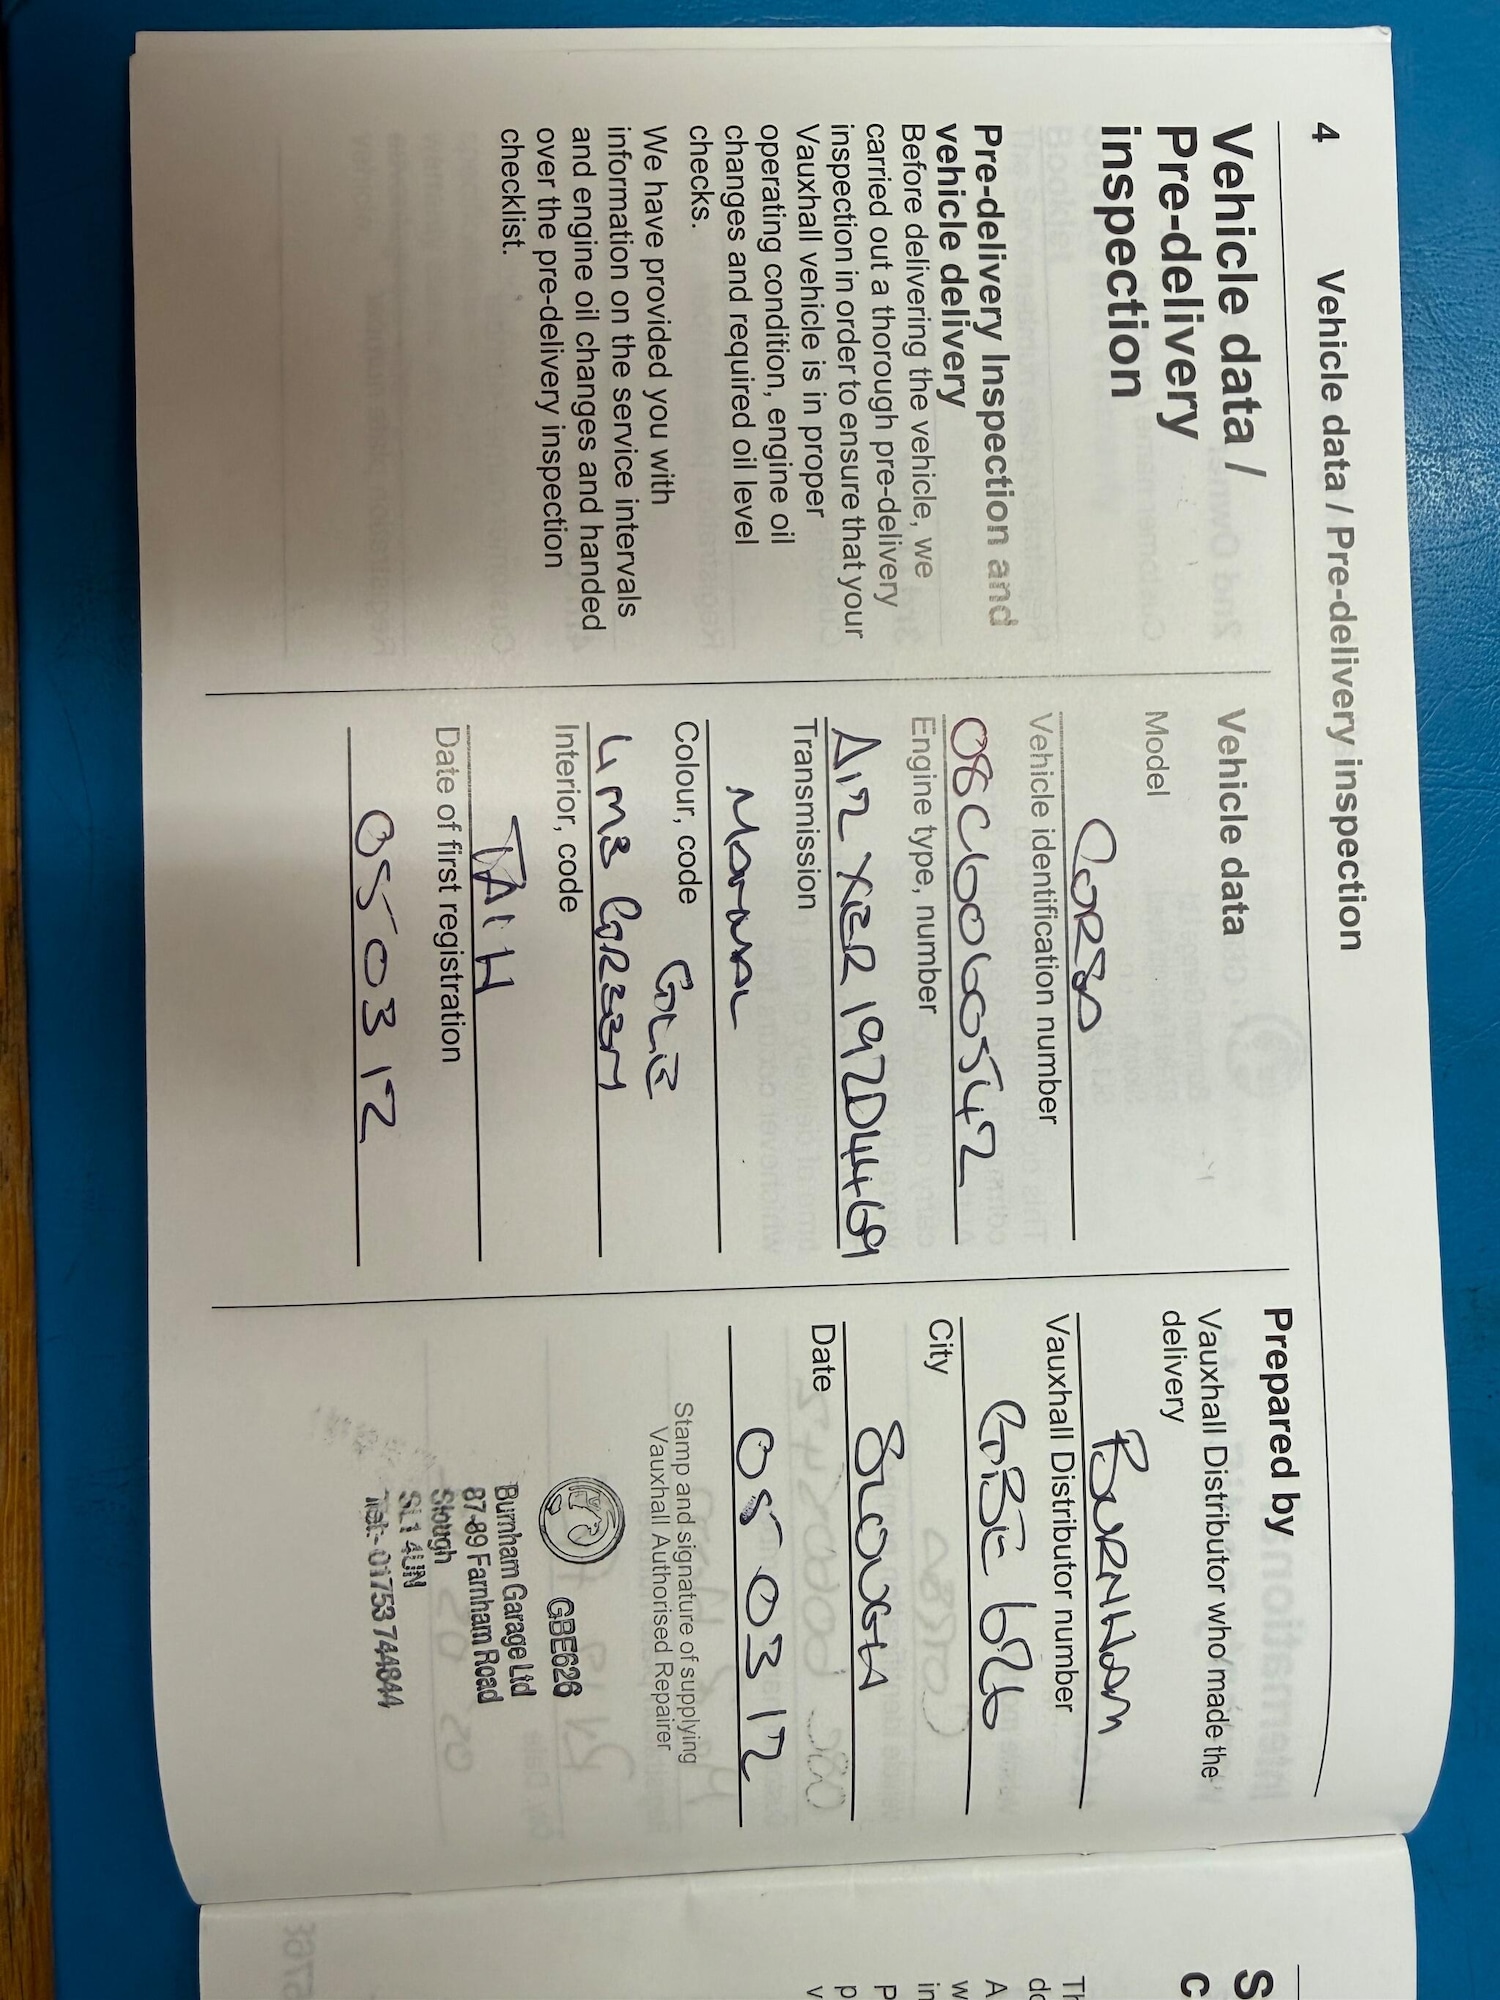 4 Vehicle data / Pre-delivery inspection
Vehicle data /
Pre-delivery
inspection
Pre-delivery Inspection and
vehicle delivery
Before delivering the vehicle, we
carried out a thorough pre-delivery
inspection in order to ensure that your
Vauxhall vehicle is in proper
operating condition, engine oil
changes and required oil level
checks.
We have provided you with
information on the service intervals
and engine oil changes and handed
over the pre-delivery inspection
checklist.
Vehicle data
Model
CORSA
Vehicle identification number
08C6060542
Engine type, number
A12 XER 19ZD4469
Transmission
MANUAL
Colour, code GLE
4M3 GREEN
Interior, code
TAIH
Date of first registration
05 03 12
Prepared by
Vauxhall Distributor who made the
delivery
BURNHAM
Vauxhall Distributor number
GBE 626
City
SLOUGH
Date
05 03 12
Stamp and signature of supplying
Vauxhall Authorised Repairer
GBE626
Burnham Garage Ltd
87-89 Farnham Road
Slough
SL1 4UN
Tel:- 01753 744844
S
c